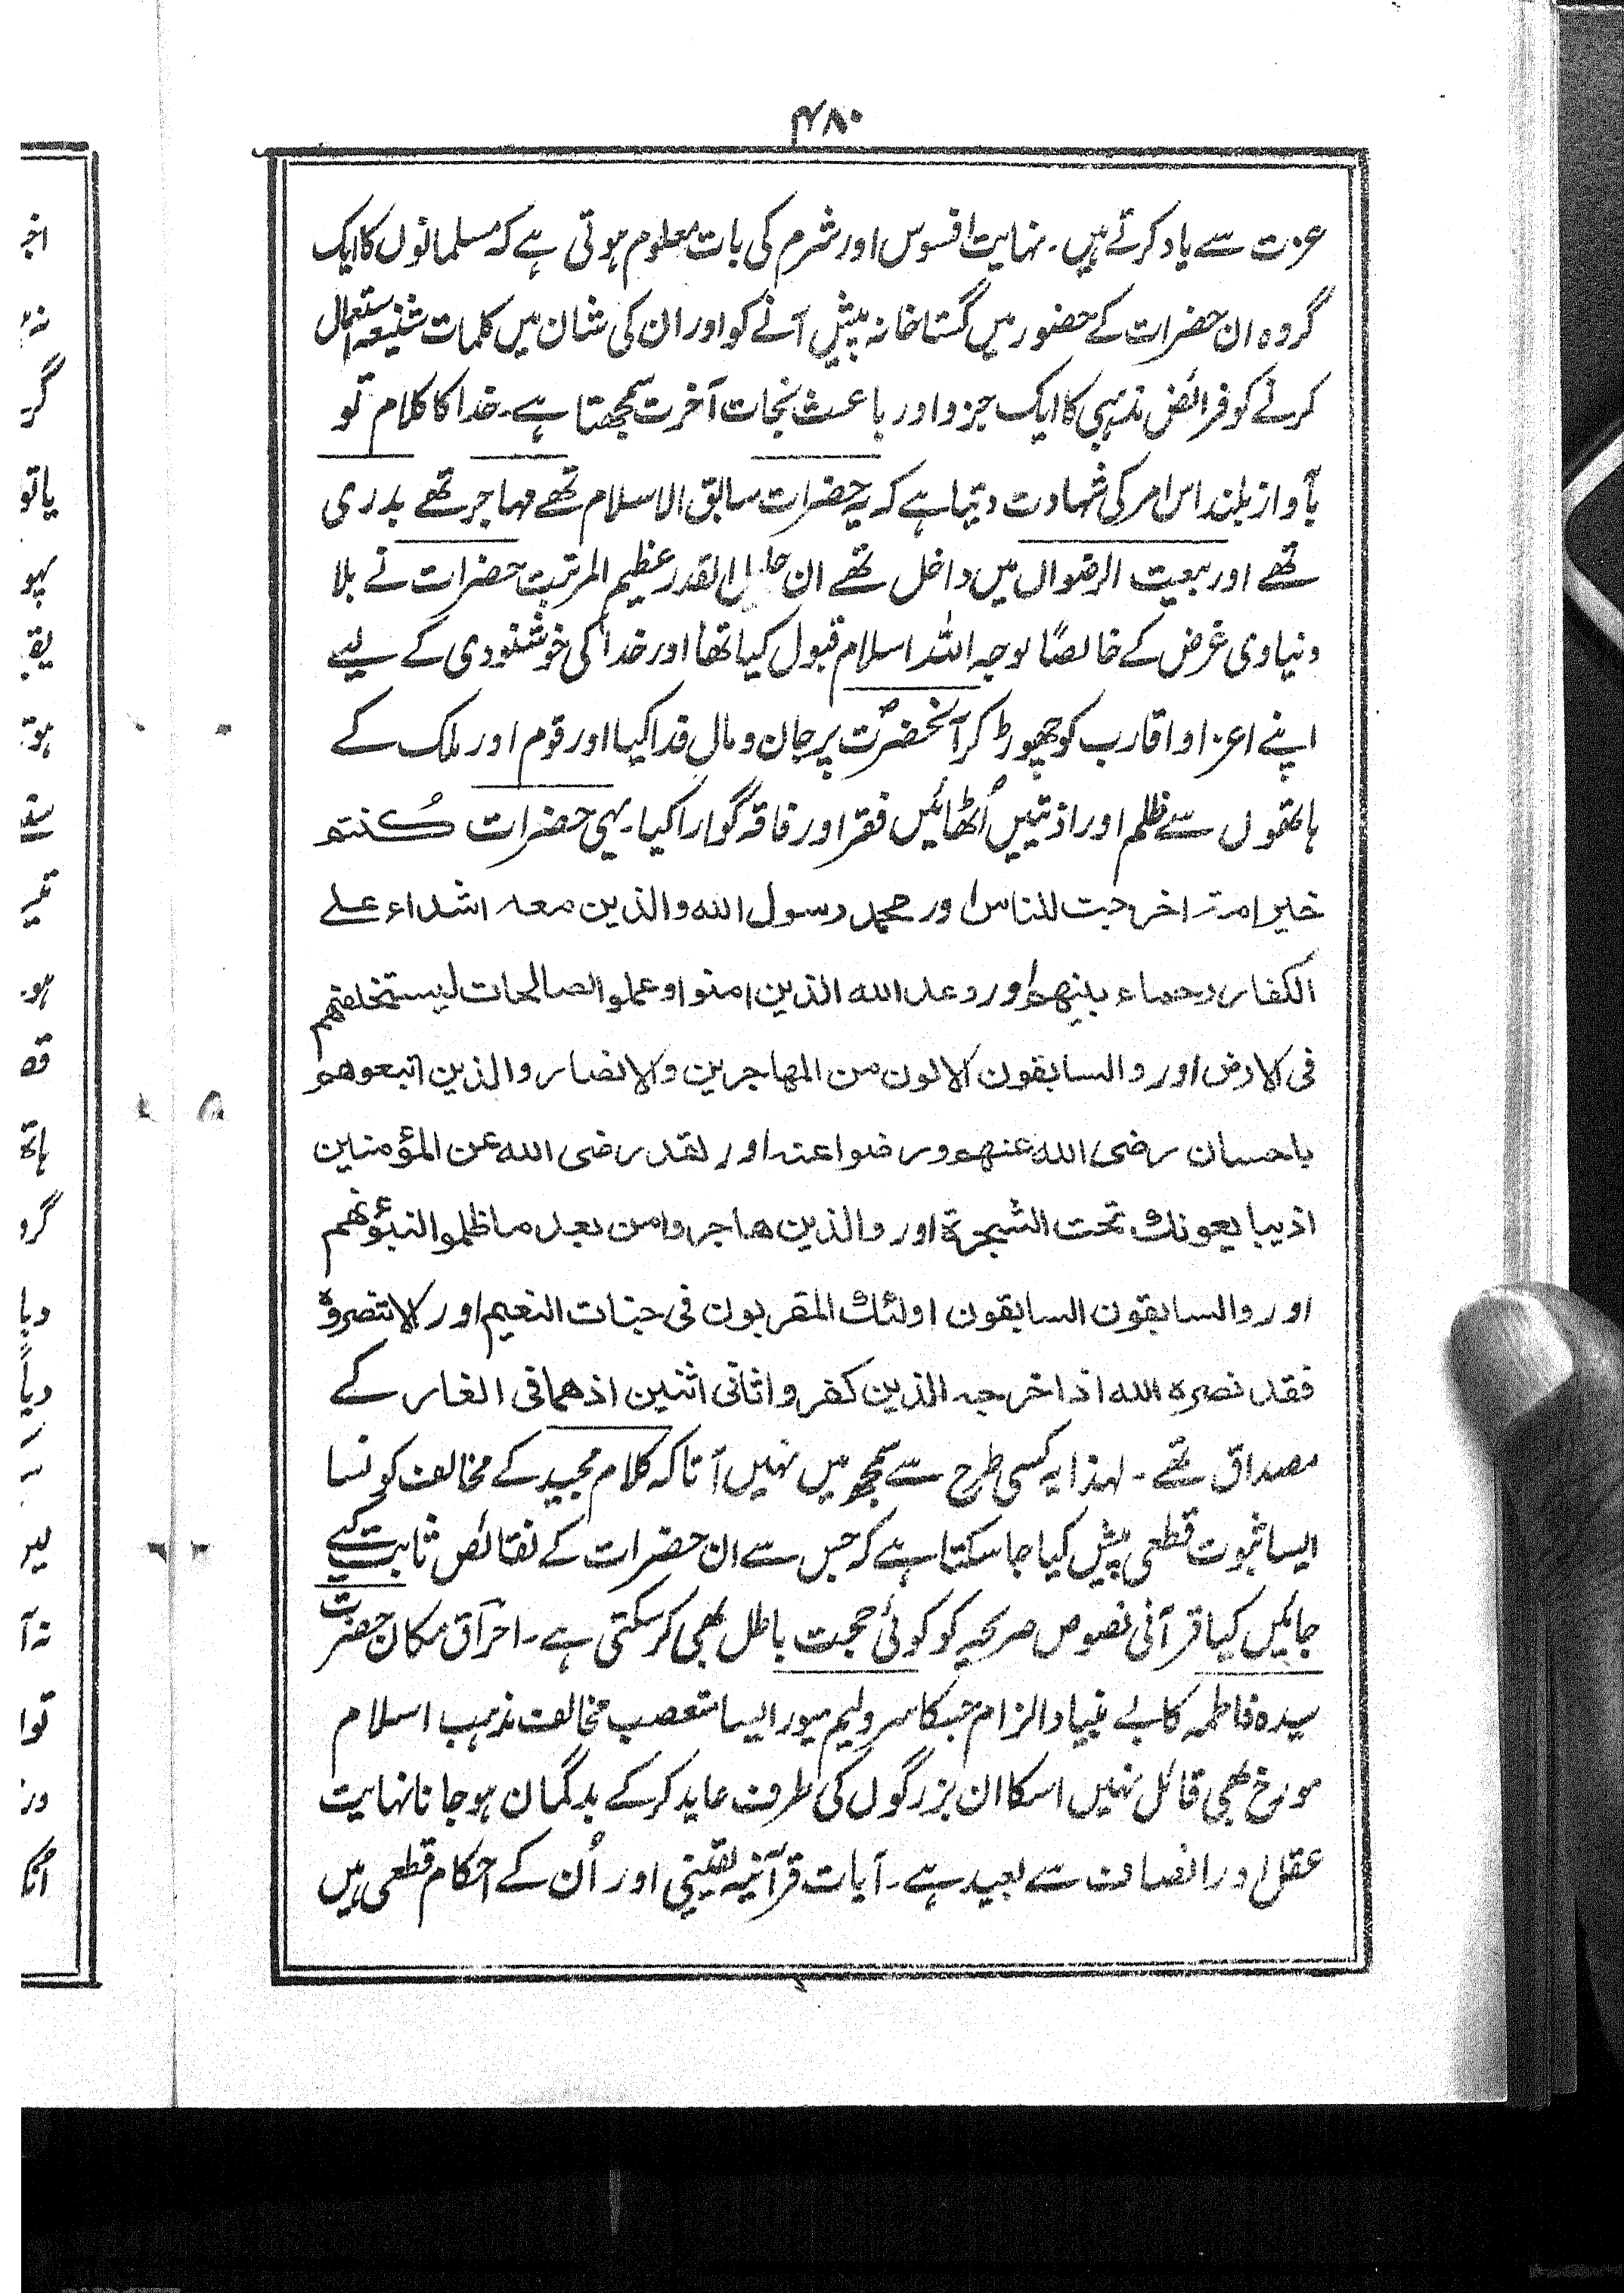 ۴۸۰
عزت سے یاد کرتے ہیں۔ نہایت افسوس اور شرم کی بات معلوم ہوتی ہے کہ مسلمانوں کا ایک
گروہ ان حضرات کے حضور میں گستاخانہ پیش آنے کو اور ان کی شان میں کلمات شنیعہ استعمال
کرنے کو فرائض مذہبی کا ایک جزو اور باعث نجات آخرت سمجھتا ہے۔ خدا کا کلام تو
بآواز بلند اس امر کی شہادت دیتا ہے کہ یہ حضرات سابق الاسلام تھے مہاجر تھے بدری
تھے اور بیعت الرضوان میں داخل تھے ان جلیل القدر عظیم المرتبت حضرات نے بلا
دنیاوی غرض کے خالصًا لوجہ اللہ اسلام قبول کیا تھا اور خدا کی خوشنودی کے لیے
اپنے اعزا و اقارب کو چھوڑ کر آنحضرتؐ پر جان و مال فدا کیا اور قوم اور ملک کے
ہاتھوں سے ظلم اور اذیتیں اُٹھائیں فقر اور فاقہ گوارا کیا۔ یہی حضرات کُنتم
خیر امۃ اخرجت للناس اور محمد رسول اللہ والذین معہ اشداء علے
الکفار رحماء بینھم اور وعد اللہ الذین امنوا وعملوا الصالحات لیستخلفنھم
فی الارض اور والسابقون الاولون من المھاجرین والانصار والذین اتبعوھم
باحسان رضی اللہ عنھم ورضوا عنہ اور لقد رضی اللہ عن المؤمنین
اذ یبایعونك تحت الشجرۃ اور والذین ھاجروا من بعد ما ظلموا لنبؤنھم
اور والسابقون السابقون اولئك المقربون فی جنات النعیم اور الا تنصروہ
فقد نصرہ اللہ اذ اخرجہ الذین کفروا ثانی اثنین اذ ھما فی الغار کے
مصداق تھے۔ لہذا یہ کسی طرح سے سمجھ میں نہیں آتا کہ کلام مجید کے مخالف کونسا
ایسا ثبوت قطعی پیش کیا جا سکتا ہے کہ جس سے ان حضرات کے نقائص ثابت کیے
جائیں کیا قرآنی نصوص صریحہ کو کوئی حجت باطل بھی کر سکتی ہے۔ احراق مکان حضرت
سیدہ فاطمہ کا بے بنیاد الزام جسکا سر ولیم میور ایسا متعصب مخالف مذہب اسلام
مورخ بھی قائل نہیں اسکا ان بزرگوں کی طرف عاید کر کے بدگمان ہو جانا نہایت
عقل اور انصاف سے بعید ہے۔ آیات قرآنیہ یقینی اور اُن کے احکام قطعی ہیں